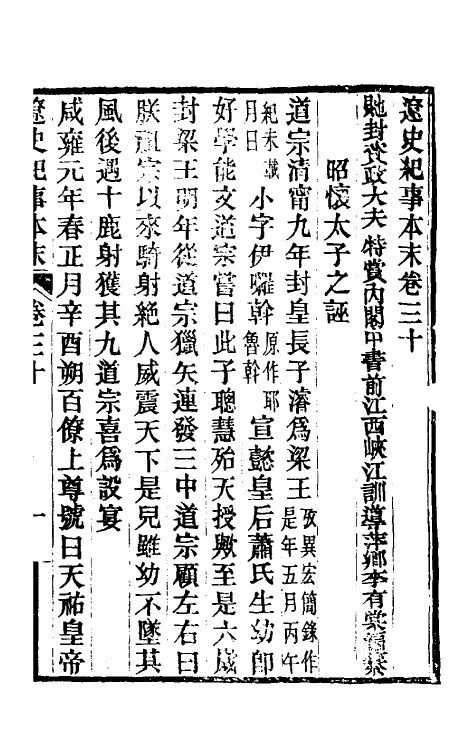 遼史紀事本末卷三十
貤封資政大夫特賞內閣中書前江西峽江訓導萍鄉李有棠編纂
昭懷太子之誣
道宗清甯九年封皇長子濬爲梁王攷異宏簡錄作是年五月丙午
紀未載月日小字伊囉斡原作耶魯斡宣懿皇后蕭氏生幼卽
好學能文道宗嘗曰此子聰慧殆天授歟至是六歲
封梁王明年從道宗獵矢連發三中道宗顧左右曰
朕祖宗以來騎射絕人威震天下是兒雖幼不墜其
風後遇十鹿射獲其九道宗喜爲設宴
咸雍元年春正月辛酉朔百僚上尊號曰天祐皇帝
遼史紀事本末 卷三十 一